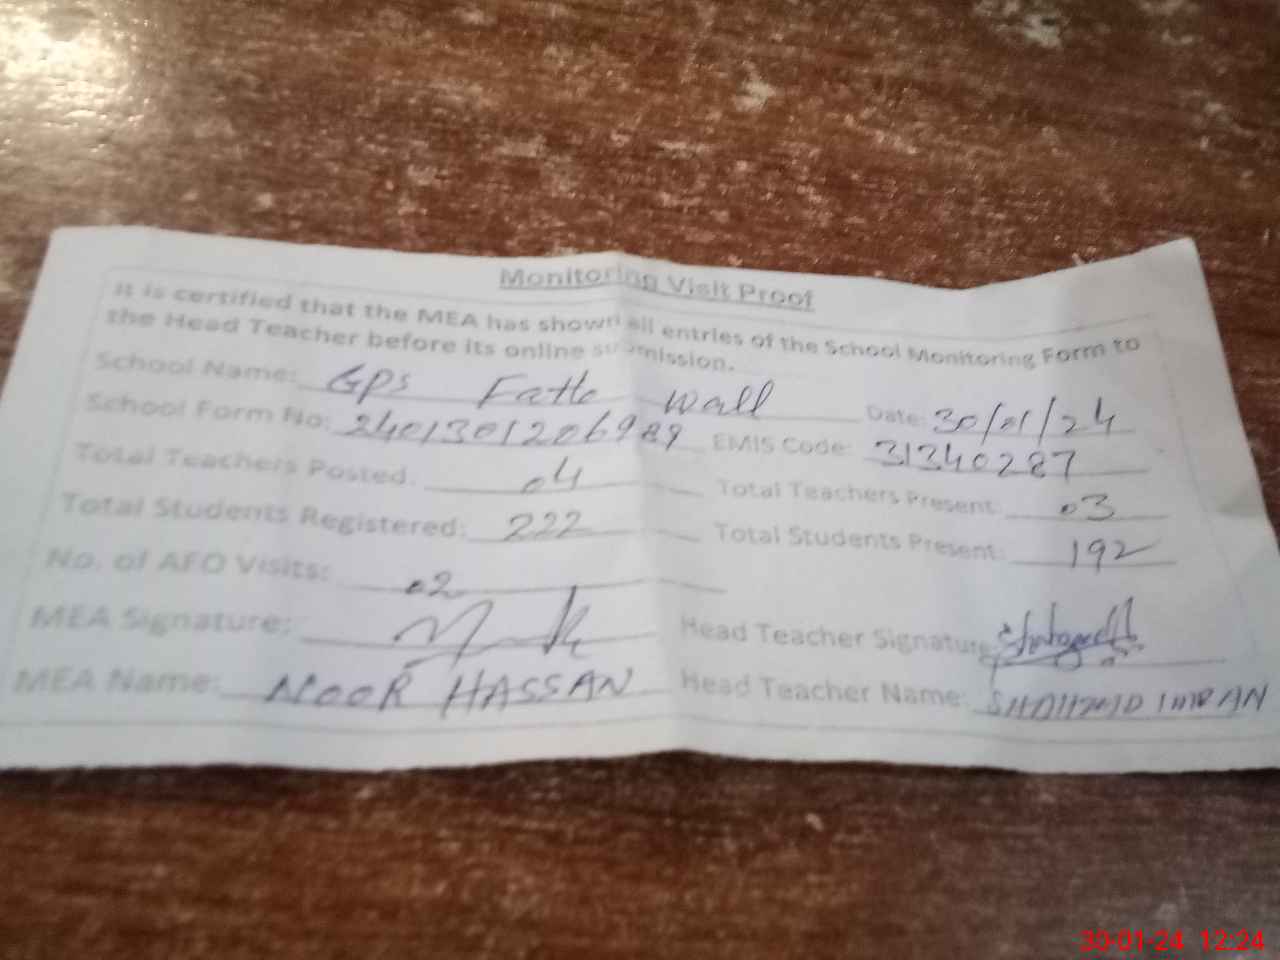 Monitoring Visit Proof
It is certified that the MEA has shown all entries of the School Monitoring Form to
the Head Teacher before its online submission.
School Name: GPS Fatto Wall Date: 30/01/24
School Form No: 2401301206989 EMIS Code: 31340287
Total Teachers Posted: 04 Total Teachers Present: 03
Total Students Registered: 222 Total Students Present: 192
No. of AFO Visits: 02
MEA Signature: Head Teacher Signature:
MEA Name: NOOR HASSAN Head Teacher Name: IMRAN
30-01-24 12:24